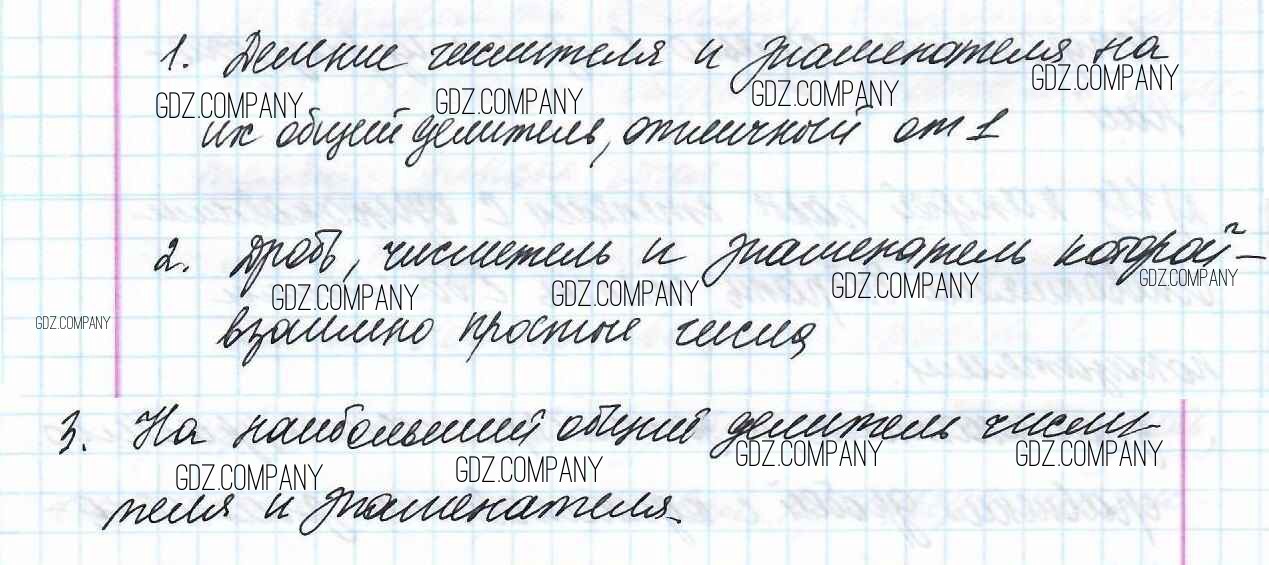 1. Деление числителя и знаменателя на
GDZ.COMPANY GDZ.COMPANY GDZ.COMPANY GDZ.COMPANY
их общий делитель, отличный от 1
2. Дробь, числитель и знаменатель которой –
GDZ.COMPANY GDZ.COMPANY GDZ.COMPANY GDZ.COMPANY
GDZ.COMPANY
взаимно простые числа
3. На наибольший общий делитель числи-
GDZ.COMPANY GDZ.COMPANY GDZ.COMPANY GDZ.COMPANY
теля и знаменателя